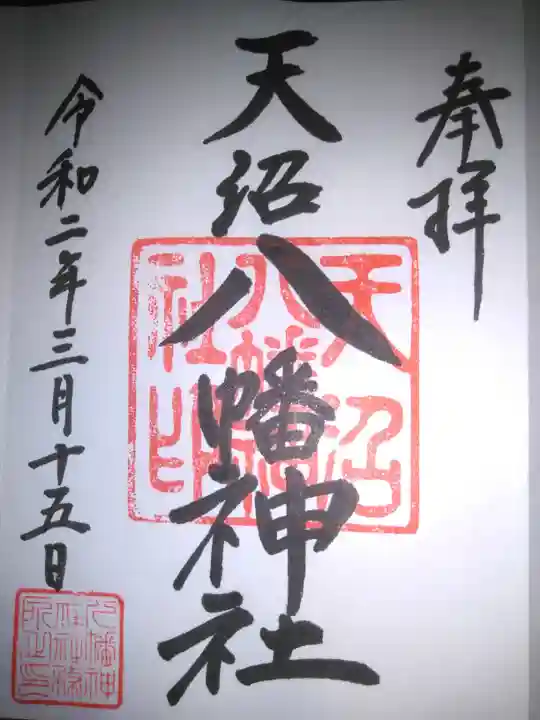 奉拝
天沼八幡神社
令和二年三月十五日
天沼
八幡神
社印